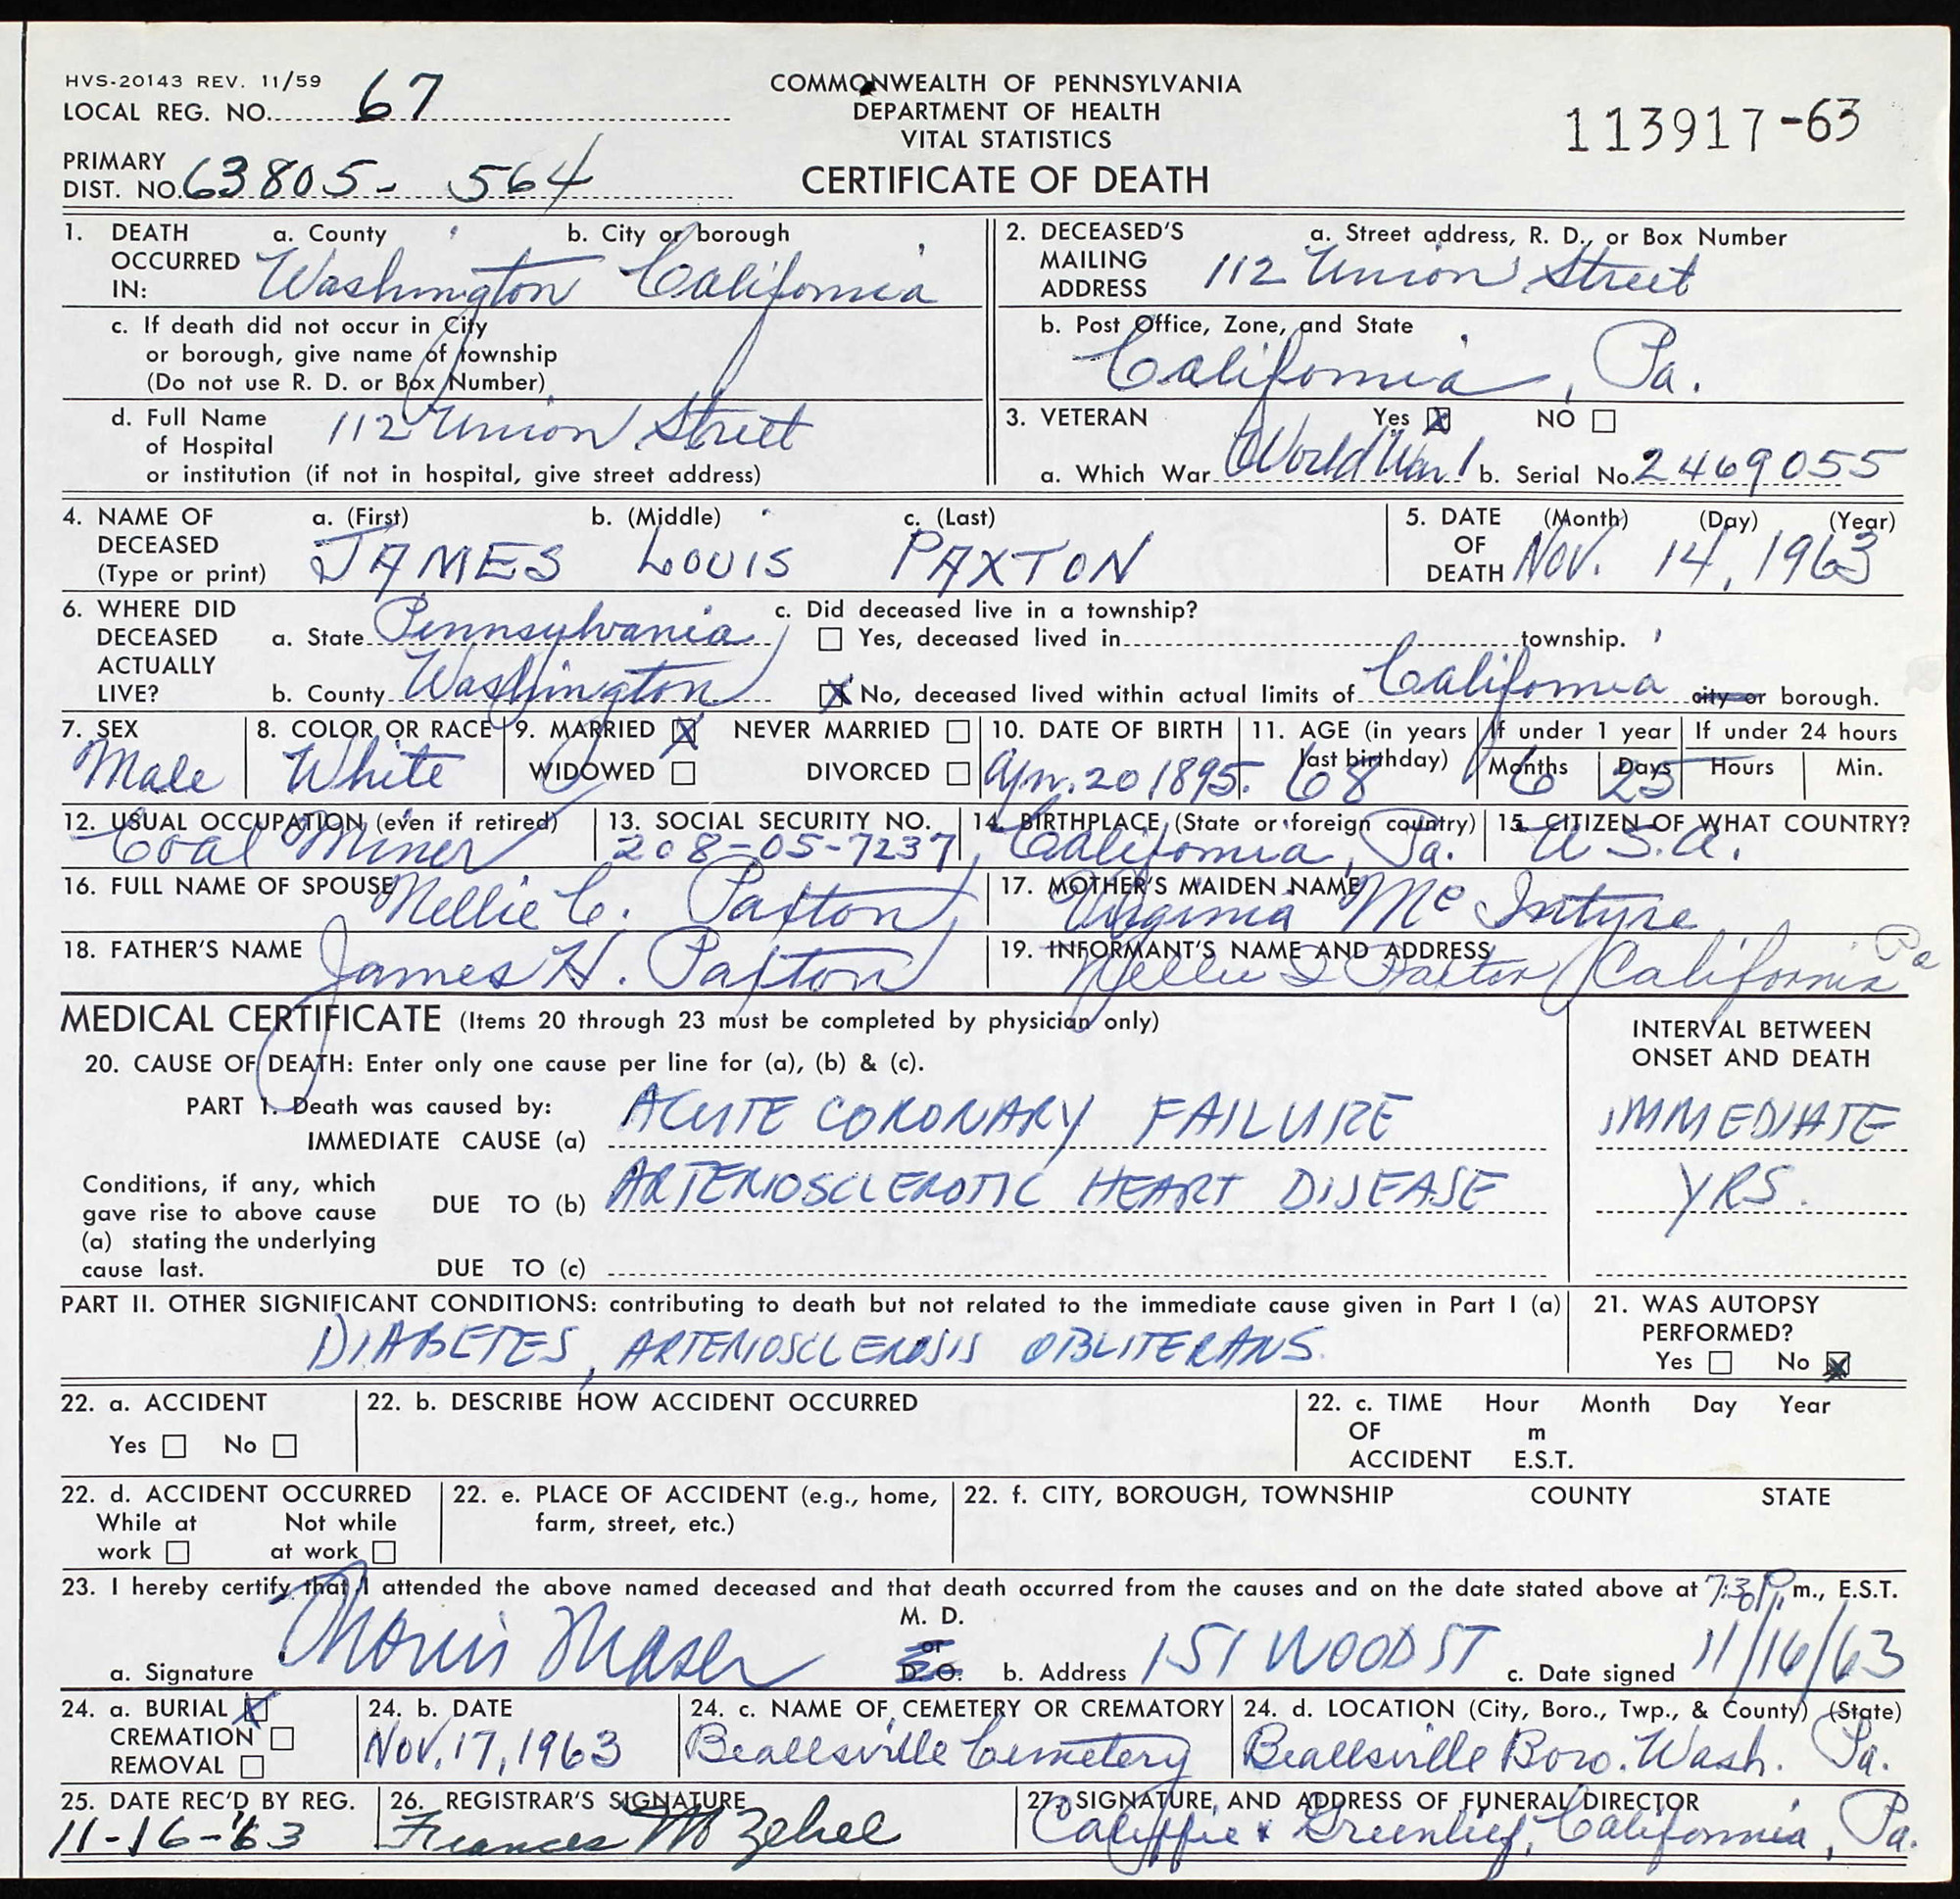 HVS-20143 REV. 11/59
LOCAL REG. NO. 67
COMMONWEALTH OF PENNSYLVANIA
DEPARTMENT OF HEALTH
VITAL STATISTICS
CERTIFICATE OF DEATH
113917-63
PRIMARY
DIST. NO. 63805- 564
1. DEATH OCCURRED IN: a. County Washington b. City or borough California
2. DECEASED'S MAILING ADDRESS a. Street address, R. D., or Box Number 112 Union Street
c. If death did not occur in City
or borough, give name of township
(Do not use R. D. or Box Number)
b. Post Office, Zone, and State
California, Pa.
d. Full Name
of Hospital 112 Union Street
or institution (if not in hospital, give street address)
3. VETERAN Yes X NO
a. Which War World War 1 b. Serial No. 2469055
4. NAME OF DECEASED (Type or print) a. (First) b. (Middle) c. (Last)
JAMES LOUIS PAXTON
5. DATE OF DEATH (Month) (Day) (Year)
Nov. 14, 1963
6. WHERE DID DECEASED ACTUALLY LIVE?
a. State Pennsylvania
b. County Washington
c. Did deceased live in a township?
Yes, deceased lived in township.
X No, deceased lived within actual limits of California city or borough.
7. SEX Male
8. COLOR OR RACE White
9. MARRIED X NEVER MARRIED
WIDOWED DIVORCED
10. DATE OF BIRTH Apr. 20 1895.
11. AGE (in years last birthday) 68
If under 1 year Months 6 Days 25
If under 24 hours Hours Min.
12. USUAL OCCUPATION (even if retired) Coal Miner
13. SOCIAL SECURITY NO. 208-05-7237
14. BIRTHPLACE (State or foreign country) California, Pa.
15. CITIZEN OF WHAT COUNTRY? U.S.A.
16. FULL NAME OF SPOUSE Nellie C. Paxton
17. MOTHER'S MAIDEN NAME Virginia McIntyre
18. FATHER'S NAME James H. Paxton
19. INFORMANT'S NAME AND ADDRESS Nellie Paxton California Pa
MEDICAL CERTIFICATE (Items 20 through 23 must be completed by physician only)
INTERVAL BETWEEN
ONSET AND DEATH
20. CAUSE OF DEATH: Enter only one cause per line for (a), (b) & (c).
PART 1. Death was caused by:
IMMEDIATE CAUSE (a) ACUTE CORONARY FAILURE IMMEDIATE
Conditions, if any, which
gave rise to above cause
(a) stating the underlying
cause last.
DUE TO (b) ARTERIOSCLEROTIC HEART DISEASE YRS.
DUE TO (c)
PART II. OTHER SIGNIFICANT CONDITIONS: contributing to death but not related to the immediate cause given in Part I (a)
DIABETES, ARTERIOSCLEROSIS OBLITERANS.
21. WAS AUTOPSY
PERFORMED?
Yes No X
22. a. ACCIDENT
Yes No
22. b. DESCRIBE HOW ACCIDENT OCCURRED
22. c. TIME OF ACCIDENT Hour Month Day Year
m
E.S.T.
22. d. ACCIDENT OCCURRED
While at work Not while at work
22. e. PLACE OF ACCIDENT (e.g., home, farm, street, etc.)
22. f. CITY, BOROUGH, TOWNSHIP COUNTY STATE
23. I hereby certify that I attended the above named deceased and that death occurred from the causes and on the date stated above at 7:30 P m., E.S.T.
a. Signature M. D. or D. O. b. Address 151 WOOD ST c. Date signed 11/16/63
24. a. BURIAL X
CREMATION
REMOVAL
24. b. DATE
Nov. 17, 1963
24. c. NAME OF CEMETERY OR CREMATORY
Beallsville Cemetery
24. d. LOCATION (City, Boro., Twp., & County) (State)
Beallsville Boro. Wash. Pa.
25. DATE REC'D BY REG.
11-16-63
26. REGISTRAR'S SIGNATURE
Frances M Zehel
27. SIGNATURE AND ADDRESS OF FUNERAL DIRECTOR
& Greenlief, California, Pa.